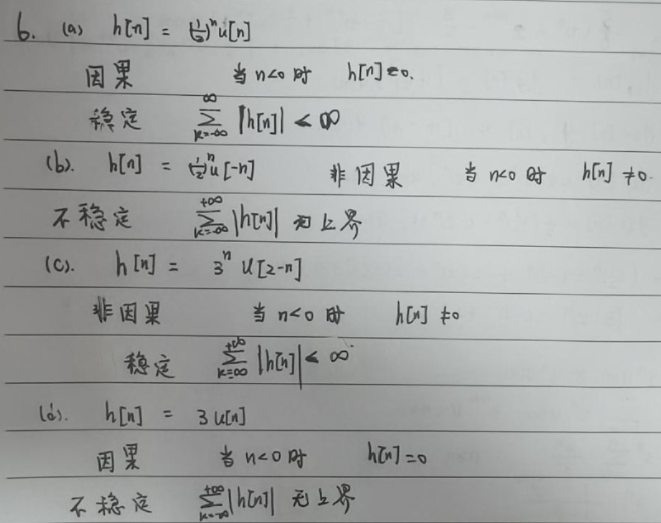 6. (a) h[n] = (1/2)^n u[n]
因果 当 n<0 时 h[n]=0.
稳定 ∑_{k=-∞}^{∞} |h[n]| < ∞
(b). h[n] = (1/2)^n u[-n] 非因果 当 n<0 时 h[n] ≠0.
不稳定 ∑_{k=-∞}^{+∞} |h[n]| 无上界
(c). h[n] = 3^n u[2-n]
非因果 当 n<0 时 h[n] ≠0
稳定 ∑_{k=-∞}^{+∞} |h[n]| < ∞
(d). h[n] = 3u[n]
因果 当 n<0 时 h[n]=0
不稳定 ∑_{k=-∞}^{+∞} |h[n]| 无上界